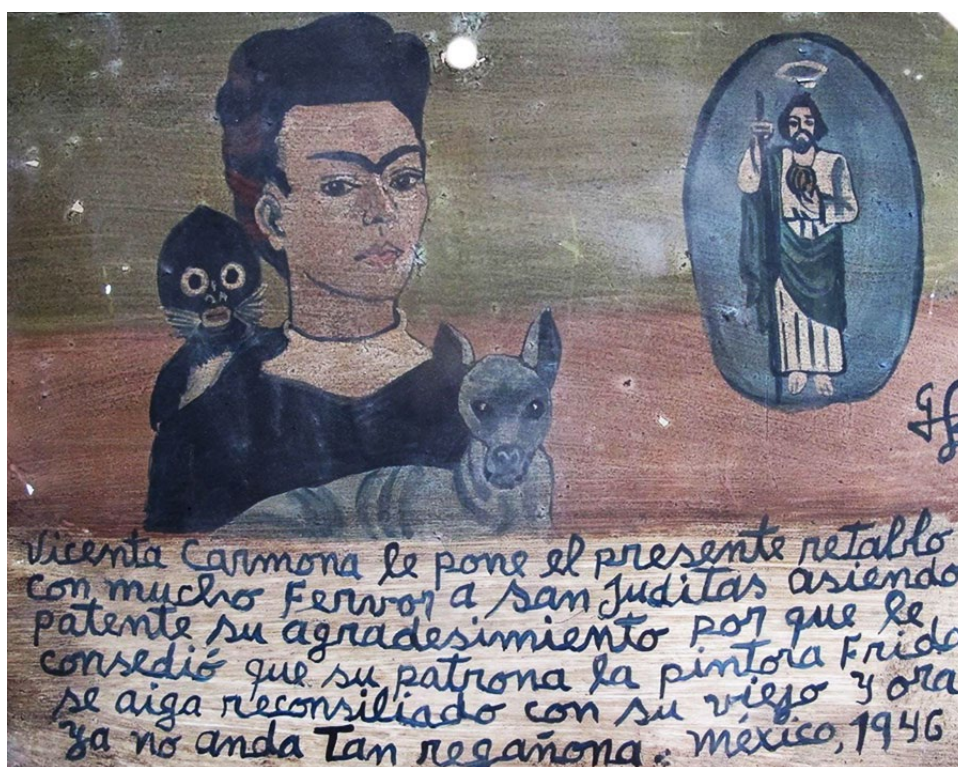 Vicenta Carmona le pone el presente retablo
con mucho Fervor a san Juditas asiendo
patente su agradesimiento por que le
consedió que su patrona la pintora Frida
se aiga reconsiliado con su viejo y ora
ya no anda Tan regañona. méxico, 1946